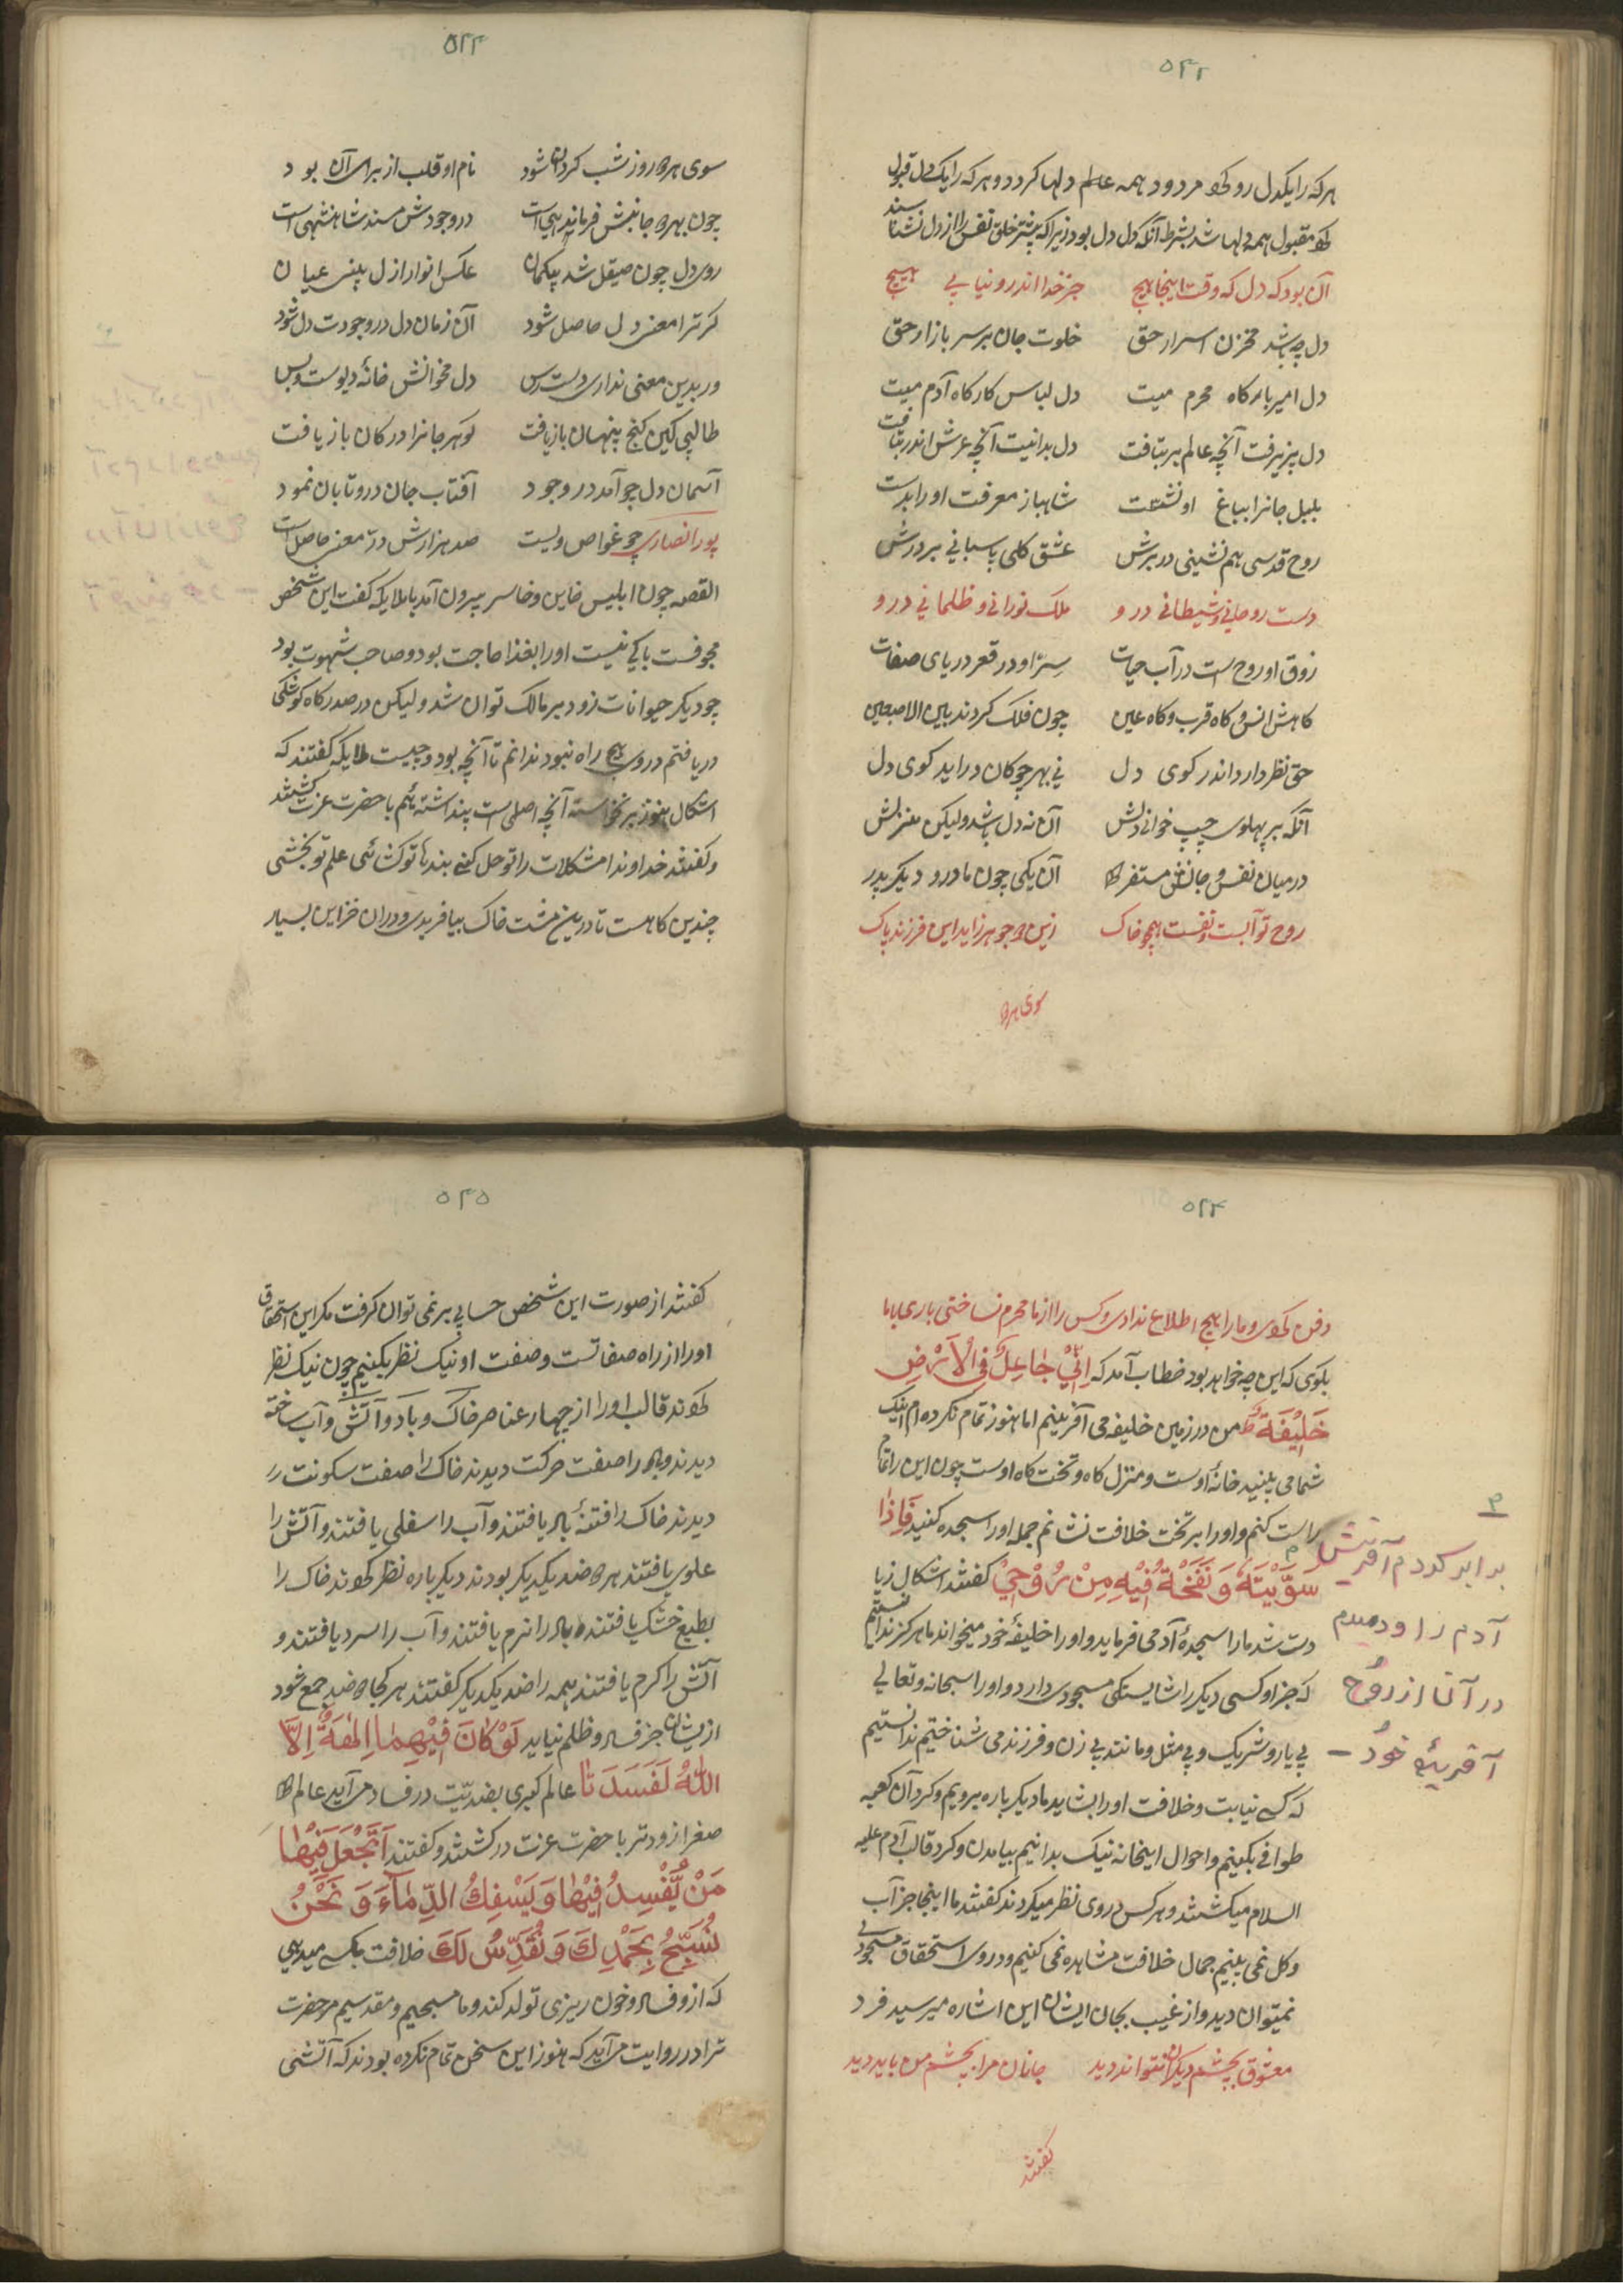 ۵۴۲
هر که را یکدل رد کرد مردود همه عالم دلها کردد و هر که را یک دل قبول
کرد مقبول همه دلها باشد بشرط آنکه دل دل بود زیرا که بیشتر خلق نفس را از دل نشناسند
آن بود که دل که وقت اینجا هیچ جز خدا اندرو نیابی هیچ
دل چه باشد مخزن اسرار حق خلوت جان بر سر بازار حق
دل امیر بارکاه محرم میت دل لباس کارکاه آدم میت
دل پزیرفت آنچه عالم بر نتافت دل بدانست آنچه عرش اندر نیافت
بلبل جانرا بباغ او نشست شاهباز معرفت اورا بدست
روح قدسی هم نشینی در برش عشق کلی پاسبانی بر درش
دست روحانی و شیطانی درو ملک نورانی و ظلمانی درو
زوق او روح است در آب حیات سِرّ او در قعر دریای صفات
کاهش انس و کاه قرب و کاه عین چون فلک کردند بین الاصبعین
حق نظر دارد اندر کوی دل نی بهر چوکان دراید کوی دل
آنکه بر پهلوی چپ خوانی دلش آن نه دل باشد ولیکن منزلش
در میان نفس و جانش مستقر آن یکی چون مادر و دیکر پدر
روح تو آبست و نفست همچو خاک زین دو جوهر زاید این فرزند پاک
سوی هر دو
۵۴۳
سوی هر دو روز شب کردان شود نام او قلب از برای آن بود
چون بهر دو جانبش فرماندهی است در وجودش مسند شاهنشهی است
روی دل چون صیقل شد بیکمان عکس انوار ازل بینی عیان
کر ترا معنی دل حاصل شود آن زمان دل در وجودت دل شود
ور بدین معنی نداری دست رس دل مخوانش خانهٔ دیوست و بس
طالبی کین کنج پنهان بازیافت کوهر جانرا در کان بازیافت
آسمان دل چو آمد در وجود آفتاب جان درو تابان نمود
پور انصاری چو غواص ویست صد هزارش درّ معنی حاصل است
القصه چون ابلیس خاین و خاسر بیرون آمد با ملایکه کفت این شخص
مجوفست باکی نیست اورا بغذا حاجت بود و صاحب شهوت بود
چو دیکر حیوانات زود بر مالک توان شد ولیکن در صدرکاه کوشکی
دریافتم در وی هیچ راه نبود ندانم تا آنچه بود و چیست ملایکه کفتند که
اشکال هنوز برنخواسته آنچه اصلی است پنداشته ئیم با حضرت عزت کشتند
و کفتند خداوندا مشکلات را تو حل کنی بندها تو کشائی علم تو بخشی
چندین کاهست تا درین مشت خاک بیافریدی و دران خزاین بسیار
۵۴۴
دفن کردی و مارا هیچ اطلاع ندادی و کس را از ما محرم نساختی باری با ما
بکوی که این چه خواهد بود خطاب آمد که اِنِّیْ جٰاعِلٌ فِی الْاَرْضِ
خَلِیْفَةً من در زمین خلیفه می آفرینم اما هنوز تمام نکرده ام اینک
شما می بینید خانهٔ اوست و منزل کاه و تخت کاه اوست چون این را تمام
راست کنم و اورا بر تخت خلافت نشانم جمله اورا سجده کنید فَاِذٰا
سَوَّیْتَهُ وَ نَفَخْتُ فِیْهِ مِنْ رُوْحِیْ کفتند اشکال زیا
دت شد مارا سجدهٔ آدمی فرماید و اورا خلیفهٔ خود میخواند ما هرکز ندانستیم
که جز او کسی دیکر را شایستکی مسجودی دارد و اورا سبحانه و تعالی
بی یار و شریک و بی مثل و مانند بی زن و فرزند می شناختیم ندانستیم
که کسی نیابت و خلافت اورا بشاید ما دیکر باره برویم و کرد آن کعبه
طوافی بکنیم و احوال اینخانه نیک بدانیم بیامدن و کرد قالب آدم علیه
السلام میکشتند و هر کس در وی نظر میکردند کفتند ما اینجا جز آب
و کل نمی بینیم جمال خلافت مشاهده نمی کنیم و در وی استحقاق مسجودی
نمیتوان دید و از غیب بجان ایشان این اشاره میرسید فرد
معشوق بچشم دیکران نتواند دید جانان مرا بچشم من باید دید
کفتند
م
برابر کردم آفرینش
آدم را و دمیدم
در آن از روُح
آفریدهٔ خُود
۵۴۵
کفتند از صورت این شخص حسابی برنمی توان کرفت مکر این استحقاق
اورا از راه صفاتست و صفت او نیک نظر بکنیم چون نیک نظر
کردند قالب اورا از چهار عناصر خاک و باد و آتش و آب ساخته
دیدند و باد را صفت حرکت دیدند خاک را صفت سکونت را
دیدند خاک را فتنهٔ باد یافتند و آب را سفلی یافتند و آتش را
علوی یافتند هر دو ضد یکدیکر بودند دیکر باره نظر کردند خاک را
بطبع خشک یافتند و باد را نرم یافتند و آب را سرد یافتند و
آتش را کرم یافتند همه را ضد یکدیکر کفتند هر کجا دو ضد جمع شود
ازیشان جز فساد و ظلم نیاید لَوْ کٰانَ فِیْهِمٰا اٰلِهَةٌ اِلاَّ
اللّٰهُ لَفَسَدَتٰا عالم کبری بضدیّت در فساد می آید عالم
صغرا زودتر با حضرت عزت در کشتند و کفتند اَتَجْعَلُ فِیْهٰا
مَنْ یُّفْسِدُ فِیْهٰا وَ یَسْفِکُ الدِّمٰآءَ وَ نَحْنُ
نُسَبِّحُ بِحَمْدِکَ وَ نُقَدِّسُ لَکَ خلافت بکسی میدهی
که ازو فساد و خون ریزی تولد کند و ما مسبحیم و مقدسیم مر حضرت
ترا در روایت می آید که هنوز این سخن تمام نکرده بودند که آتشی